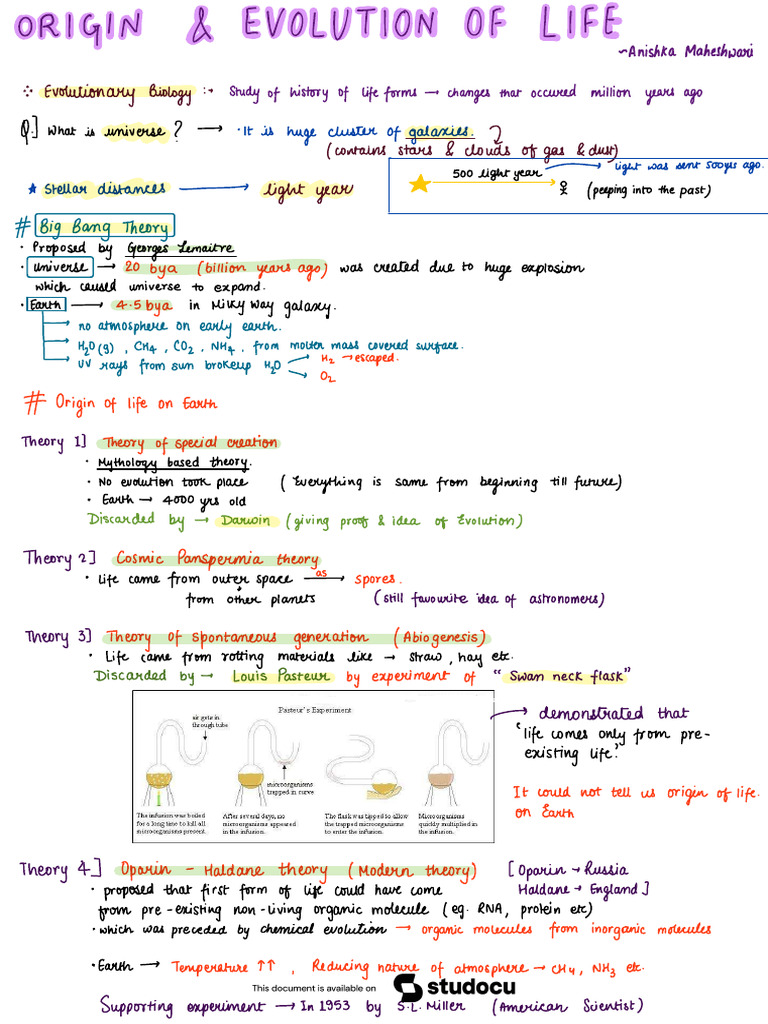 ORIGIN & EVOLUTION OF LIFE
~Anishka Maheshwari
Evolutionary Biology :- Study of history of life forms → changes that occured million years ago
Q.] What is universe? → · It is huge cluster of galaxies.
(contains stars & clouds of gas & dust)
★ Stellar distances → light year
500 light year → light was sent 500 yrs ago.
(peeping into the past)
# Big Bang Theory
· Proposed by Georges Lemaitre
· universe → 20 bya (billion years ago) was created due to huge explosion
which caused universe to expand.
· Earth → 4.5 bya in Milky Way galaxy.
→ no atmosphere on early earth.
→ H₂O(g), CH₄, CO₂, NH₄, from molten mass covered surface.
→ UV rays from sun brokeup H₂O → H₂ → escaped.
→ O₂
# Origin of life on Earth
Theory 1] Theory of special creation
· Mythology based theory.
· No evolution took place (Everything is same from beginning till future)
· Earth → 4000 yrs old
Discarded by → Darwin (giving proof & idea of Evolution)
Theory 2] Cosmic Panspermia theory
· Life came from outer space as → spores.
from other planets (still favourite idea of astronomers)
Theory 3] Theory of spontaneous generation (Abiogenesis)
· Life came from rotting materials like → straw, hay etc.
Discarded by → Louis Pasteur by experiment of "Swan neck flask"
Pasteur's Experiment
air gets in
through tube
microorganisms
trapped in curve
The infusion was boiled
for a long time to kill all
microorganisms present.
After several days, no
microorganisms appeared
in the infusion.
The flask was tipped to allow
the trapped microorganisms
to enter the infusion.
Microorganisms
quickly multiplied in
the infusion.
→ demonstrated that
'life comes only from pre-
existing life.'
It could not tell us origin of life
on Earth
Theory 4] Oparin - Haldane theory (Modern theory) [Oparin → Russia
Haldane → England]
· proposed that first form of life could have come
from pre-existing non-living organic molecule (eg. RNA, protein etc)
· which was preceded by chemical evolution → organic molecules from inorganic molecules
· Earth → Temperature ↑↑, Reducing nature of atmosphere → CH₄, NH₃ etc.
This document is available on studocu
Supporting experiment → In 1953 by S.L. Miller (American Scientist)